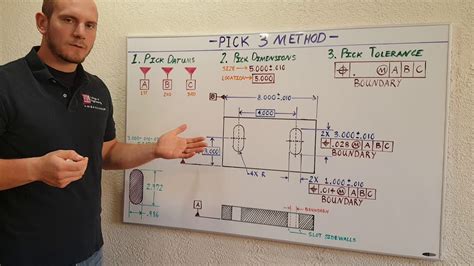 - PICK 3 METHOD -
1. PICK DATUMS
A B C
1ST 2ND 3RD
2. PICK DIMENSIONS
SIZE → 5.000±.010
LOCATION → 5.000
3. PICK TOLERANCE
⌖ .__ Ⓜ A B C
BOUNDARY
B
8.000±.010
4.000
3.000
2X 3.000±.010
⌖ .028 Ⓜ A B C
BOUNDARY
4X R
2X 1.000±.010
⌖ .014 Ⓜ A B C
BOUNDARY
2.972
.986
A
BOUNDARY
SLOT SIDEWALLS